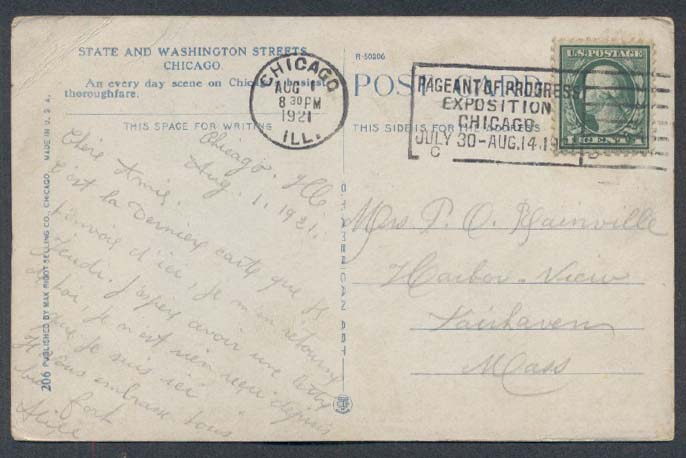 STATE AND WASHINGTON STREETS,
CHICAGO.
An every day scene on Chicago's busiest
thoroughfare.
R-50206
POST CARD
THIS SPACE FOR WRITING
THIS SIDE IS FOR THE ADDRESS
CHICAGO
AUG 1
8 30 PM
1921
ILL.
PAGEANT OF PROGRESS
EXPOSITION
CHICAGO
JULY 30-AUG.14.19
U.S. POSTAGE
1 CENT
206 PUBLISHED BY MAX RIGOT SELLING CO., CHICAGO. MADE IN U. S. A.
Chicago, Ills
Aug. 1, 1921.
Chère Amie,
C'est la Dernière carte que Je
t'envoie d'ici, Je m'en retourne
Jeudi. J'espère avoir une lettre
de toi, Je n'est rien reçu depuis
que Je suis ici
Je vous embrasse tous
bien fort
Mrs P. O. Rainville
Harbor View
Fairhaven
Mass